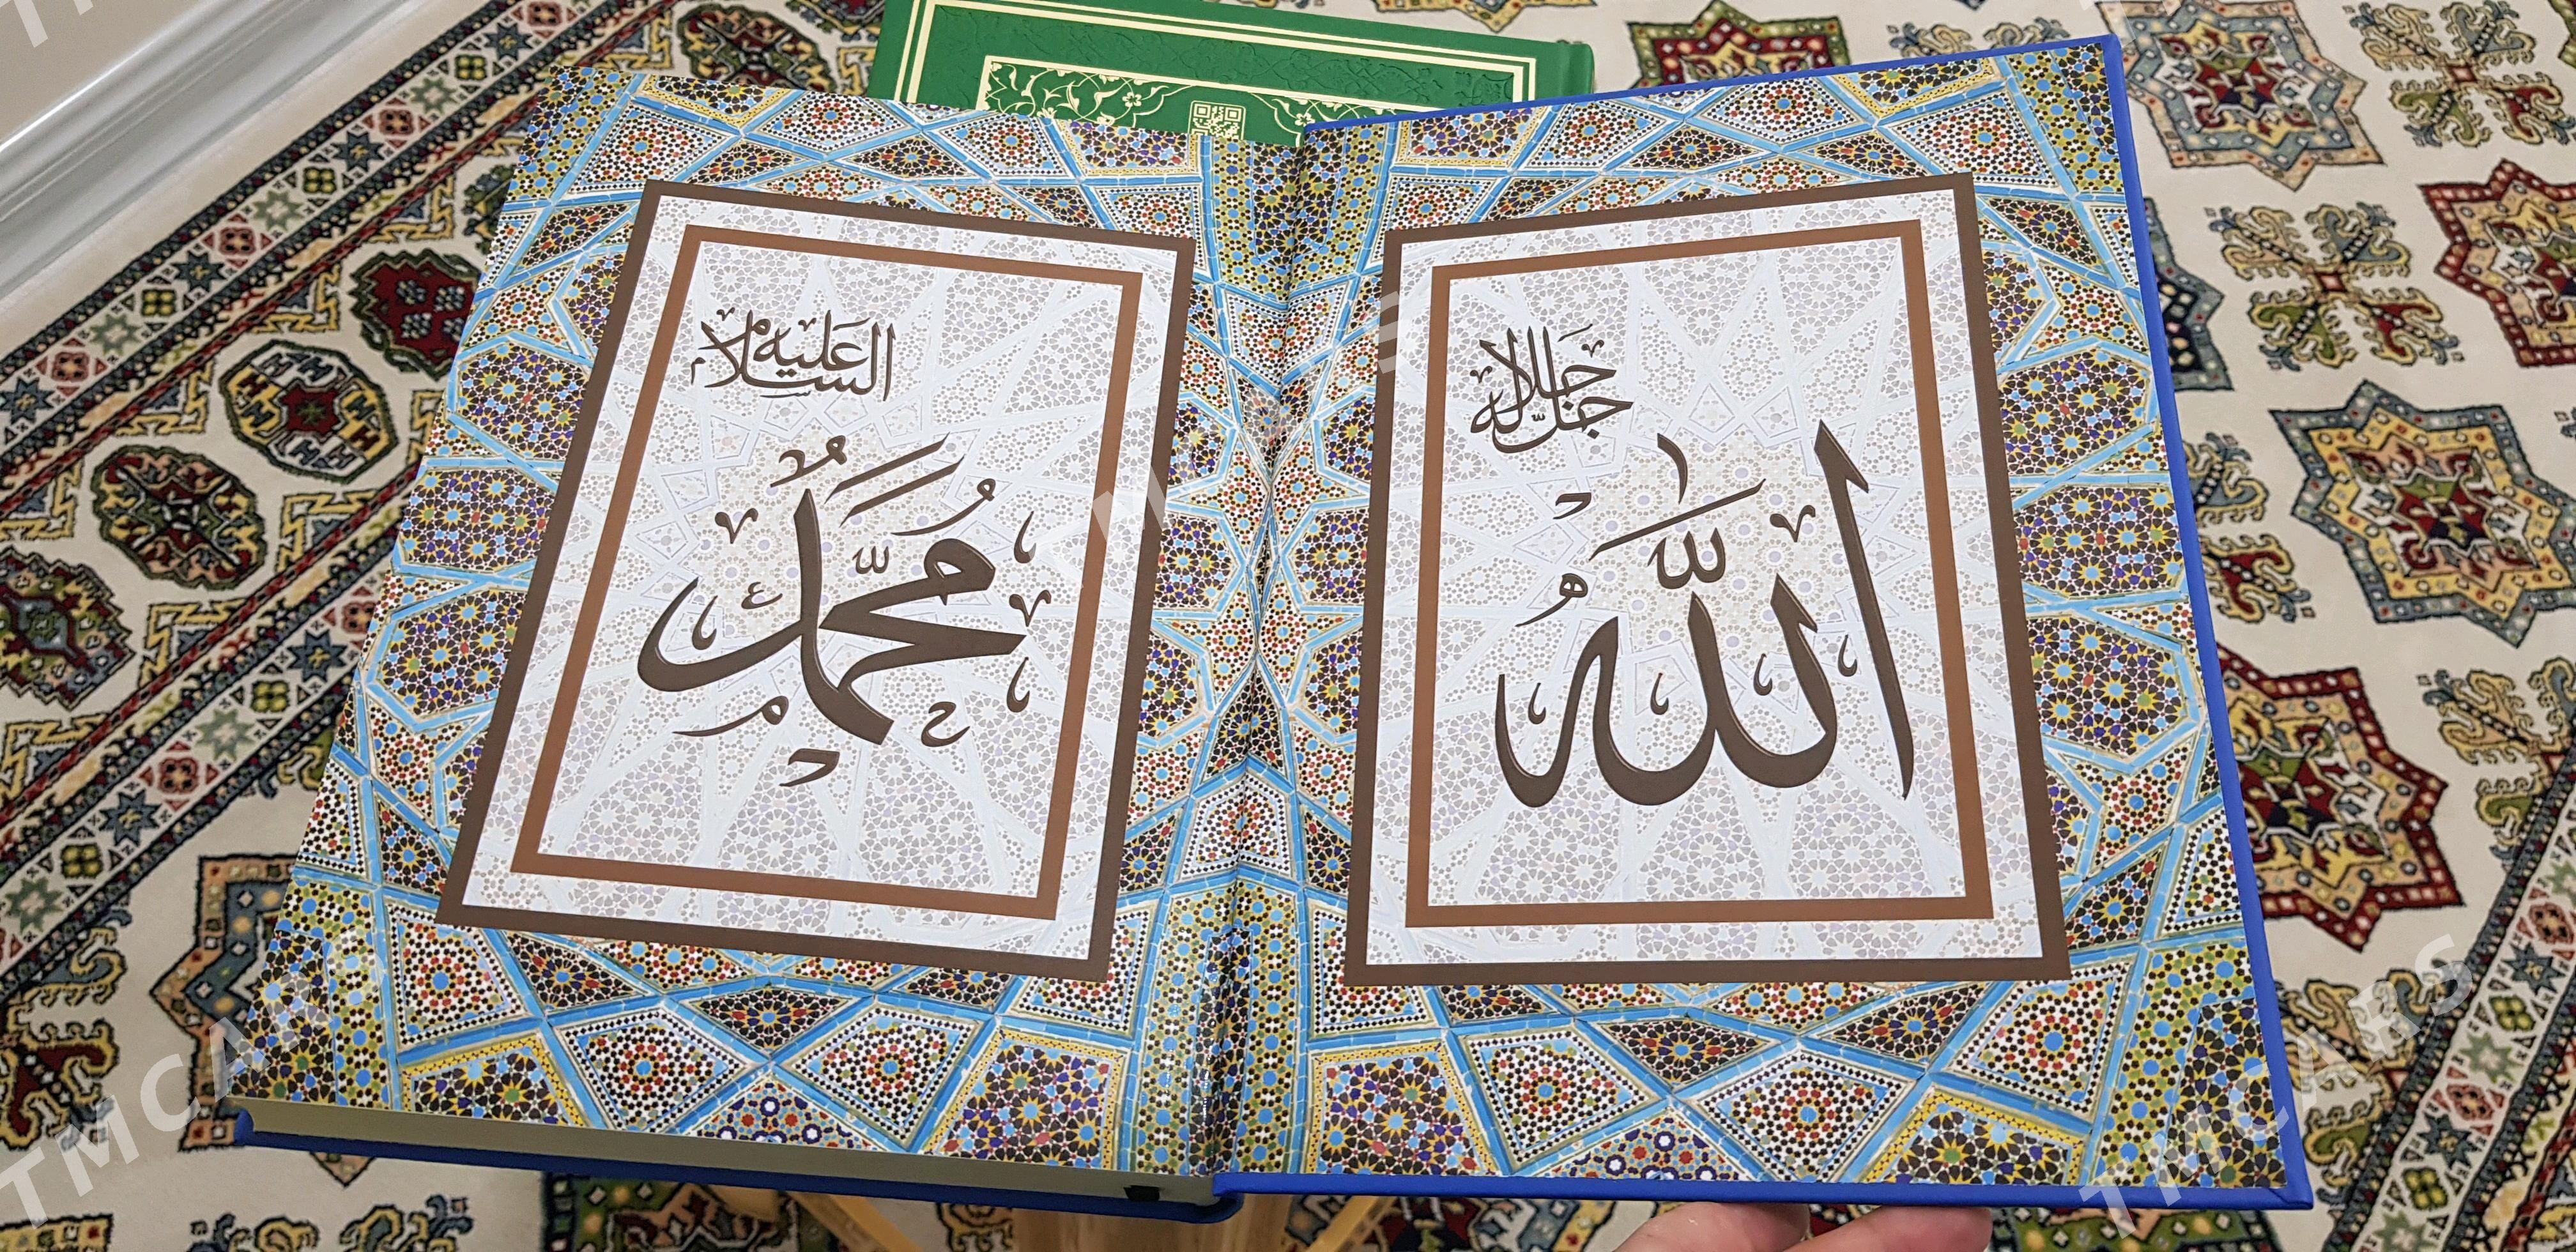 جل جلاله
الله
عليه السلام
محمد
TMCARS
TMCARS